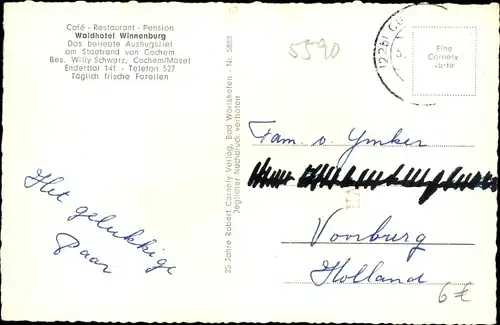 Café - Restaurant - Pension
Waldhotel Winnenburg
Das beliebte Ausflugsziel
am Stadtrand von Cochem
Bes. Willy Schwarz, Cochem/Mosel
Enderttal 141 - Telefon 527
Täglich frische Forellen
5590
(22b) CO
Eine
Cornely
Karte
25 Jahre Robert Cornely Verlag, Bad Wörishofen - Nr. 5888
Jeglicher Nachdruck verboten
Fam. v. Ymker
Voorburg
Holland
Het gelukkige
Paar
6€